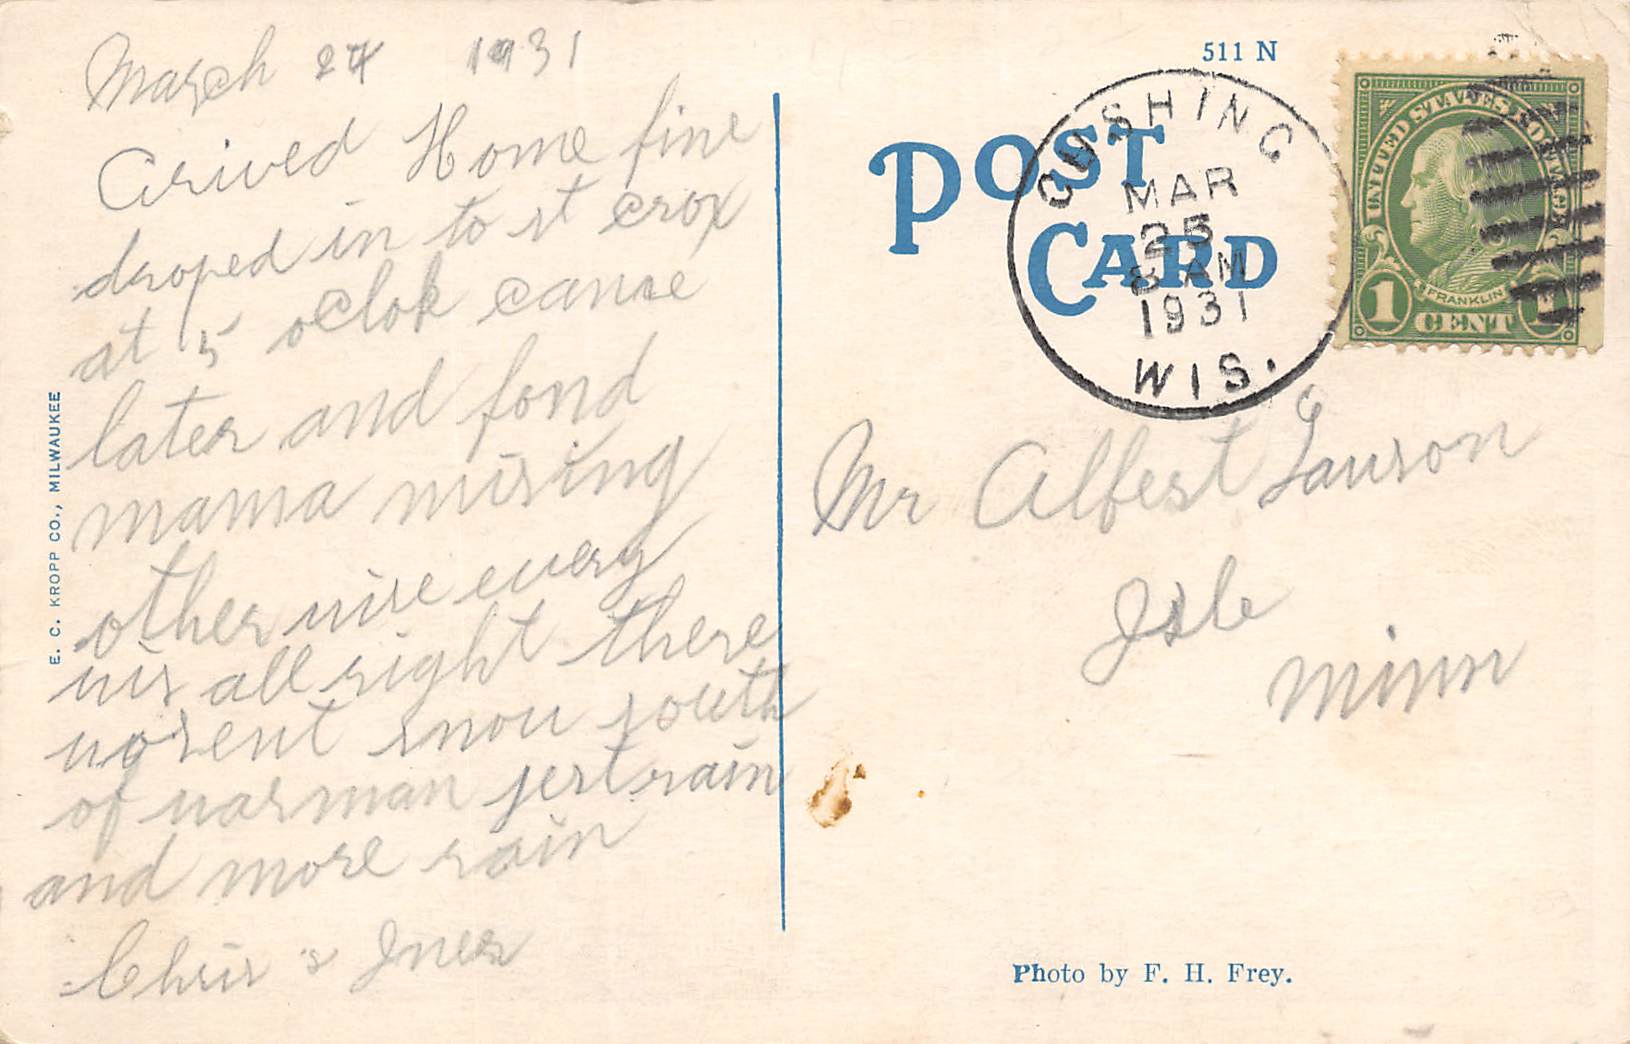 March 24 1931
Arived Home fine
droped in to st crox
at 5 oclok came
later and fond
mama mising
other wise every
wis all right there
wosent snou south
of warman jest rain
and more rain
Chris & Ines
E. C. KROPP CO., MILWAUKEE
511 N
POST
CARD
CUSHING
MAR
25
8 AM
1931
WIS.
UNITED STATES POSTAGE
FRANKLIN
1 CENT 1
Mr Albert Larson
Isle
Minn
Photo by F. H. Frey.